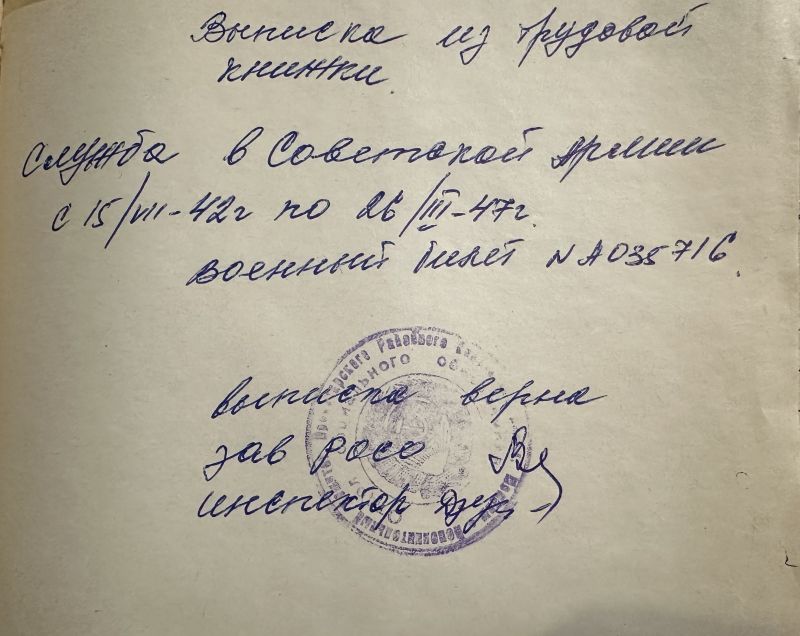 Выписка из трудовой
книжки.
Служба в Советской Армии
с 15/VII-42г по 26/III-47г.
военный билет N А035716.
выписка верна
зав РОСО
инспектор
Районного